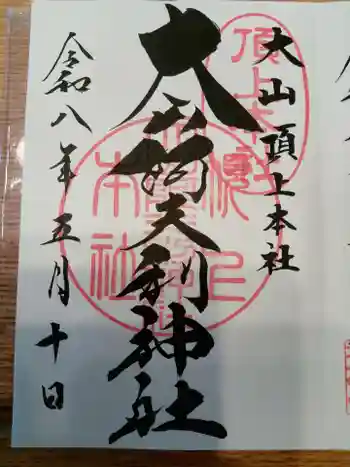 大山頂上本社
大山阿夫利神社
令和八年五月十日
頂上本社